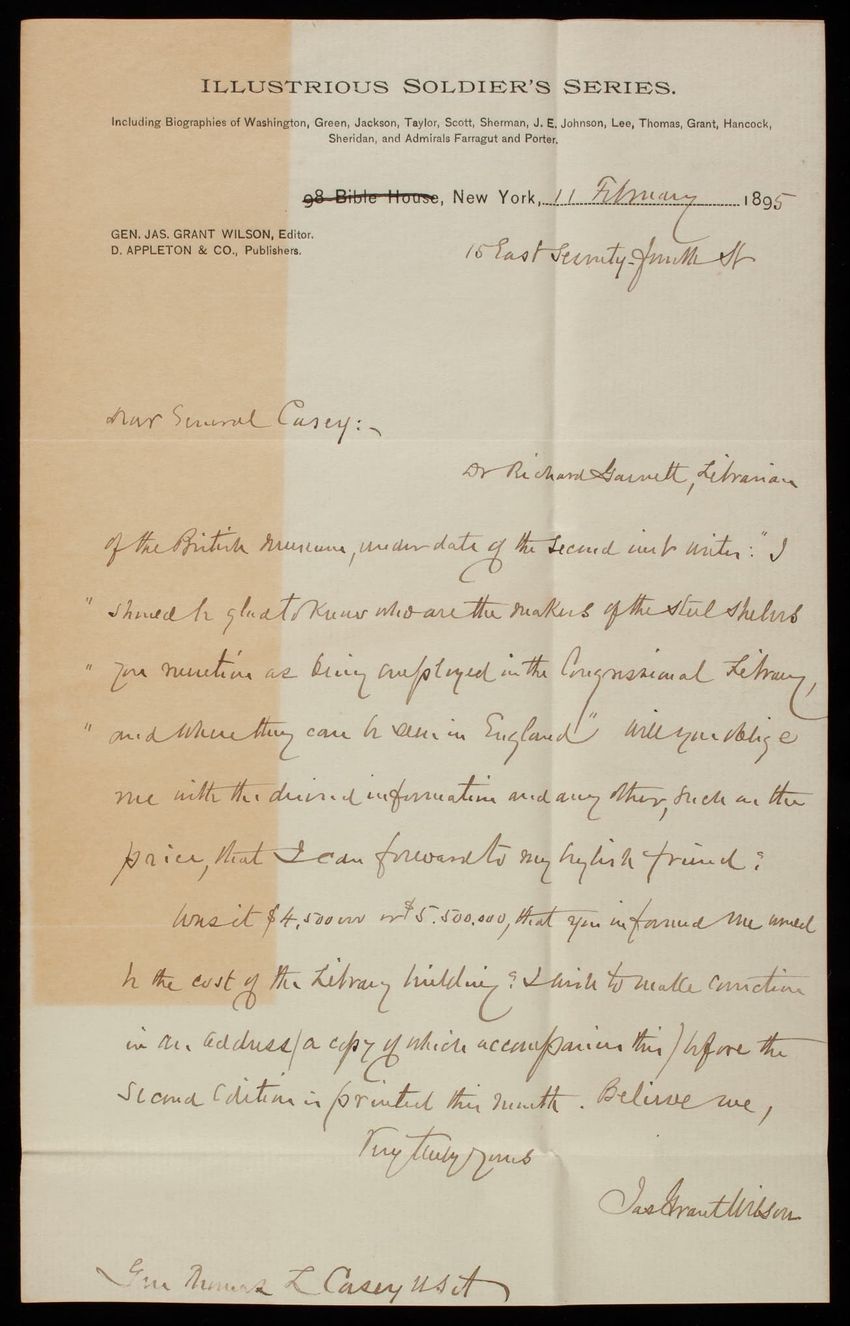 ILLUSTRIOUS SOLDIER'S SERIES.
Including Biographies of Washington, Green, Jackson, Taylor, Scott, Sherman, J. E. Johnson, Lee, Thomas, Grant, Hancock,
Sheridan, and Admirals Farragut and Porter.
98 Bible House, New York, 11 February 1895
GEN. JAS. GRANT WILSON, Editor.
D. APPLETON & CO., Publishers.
15 East Seventy-fourth St
Dear General Casey:-
Dr Richard Garnett, Librarian
of the British Museum, under date of the second inst writes: "I
" should be glad to know who are the makers of the steel shelves
" you mention as being employed in the Congressional Library,
" and where they can be seen in England" Will you oblige
me with the desired information and any other, such as the
price, that I can forward to my English friend?
Was it $4,500 000 or $5.500.000, that you informed me would
be the cost of the Library building? I wish to make correction
in an address (a copy of which accompanies this) before the
second edition is printed this month. Believe me,
Very truly yours
Jas Grant Wilson
Gen Thomas L Casey USA